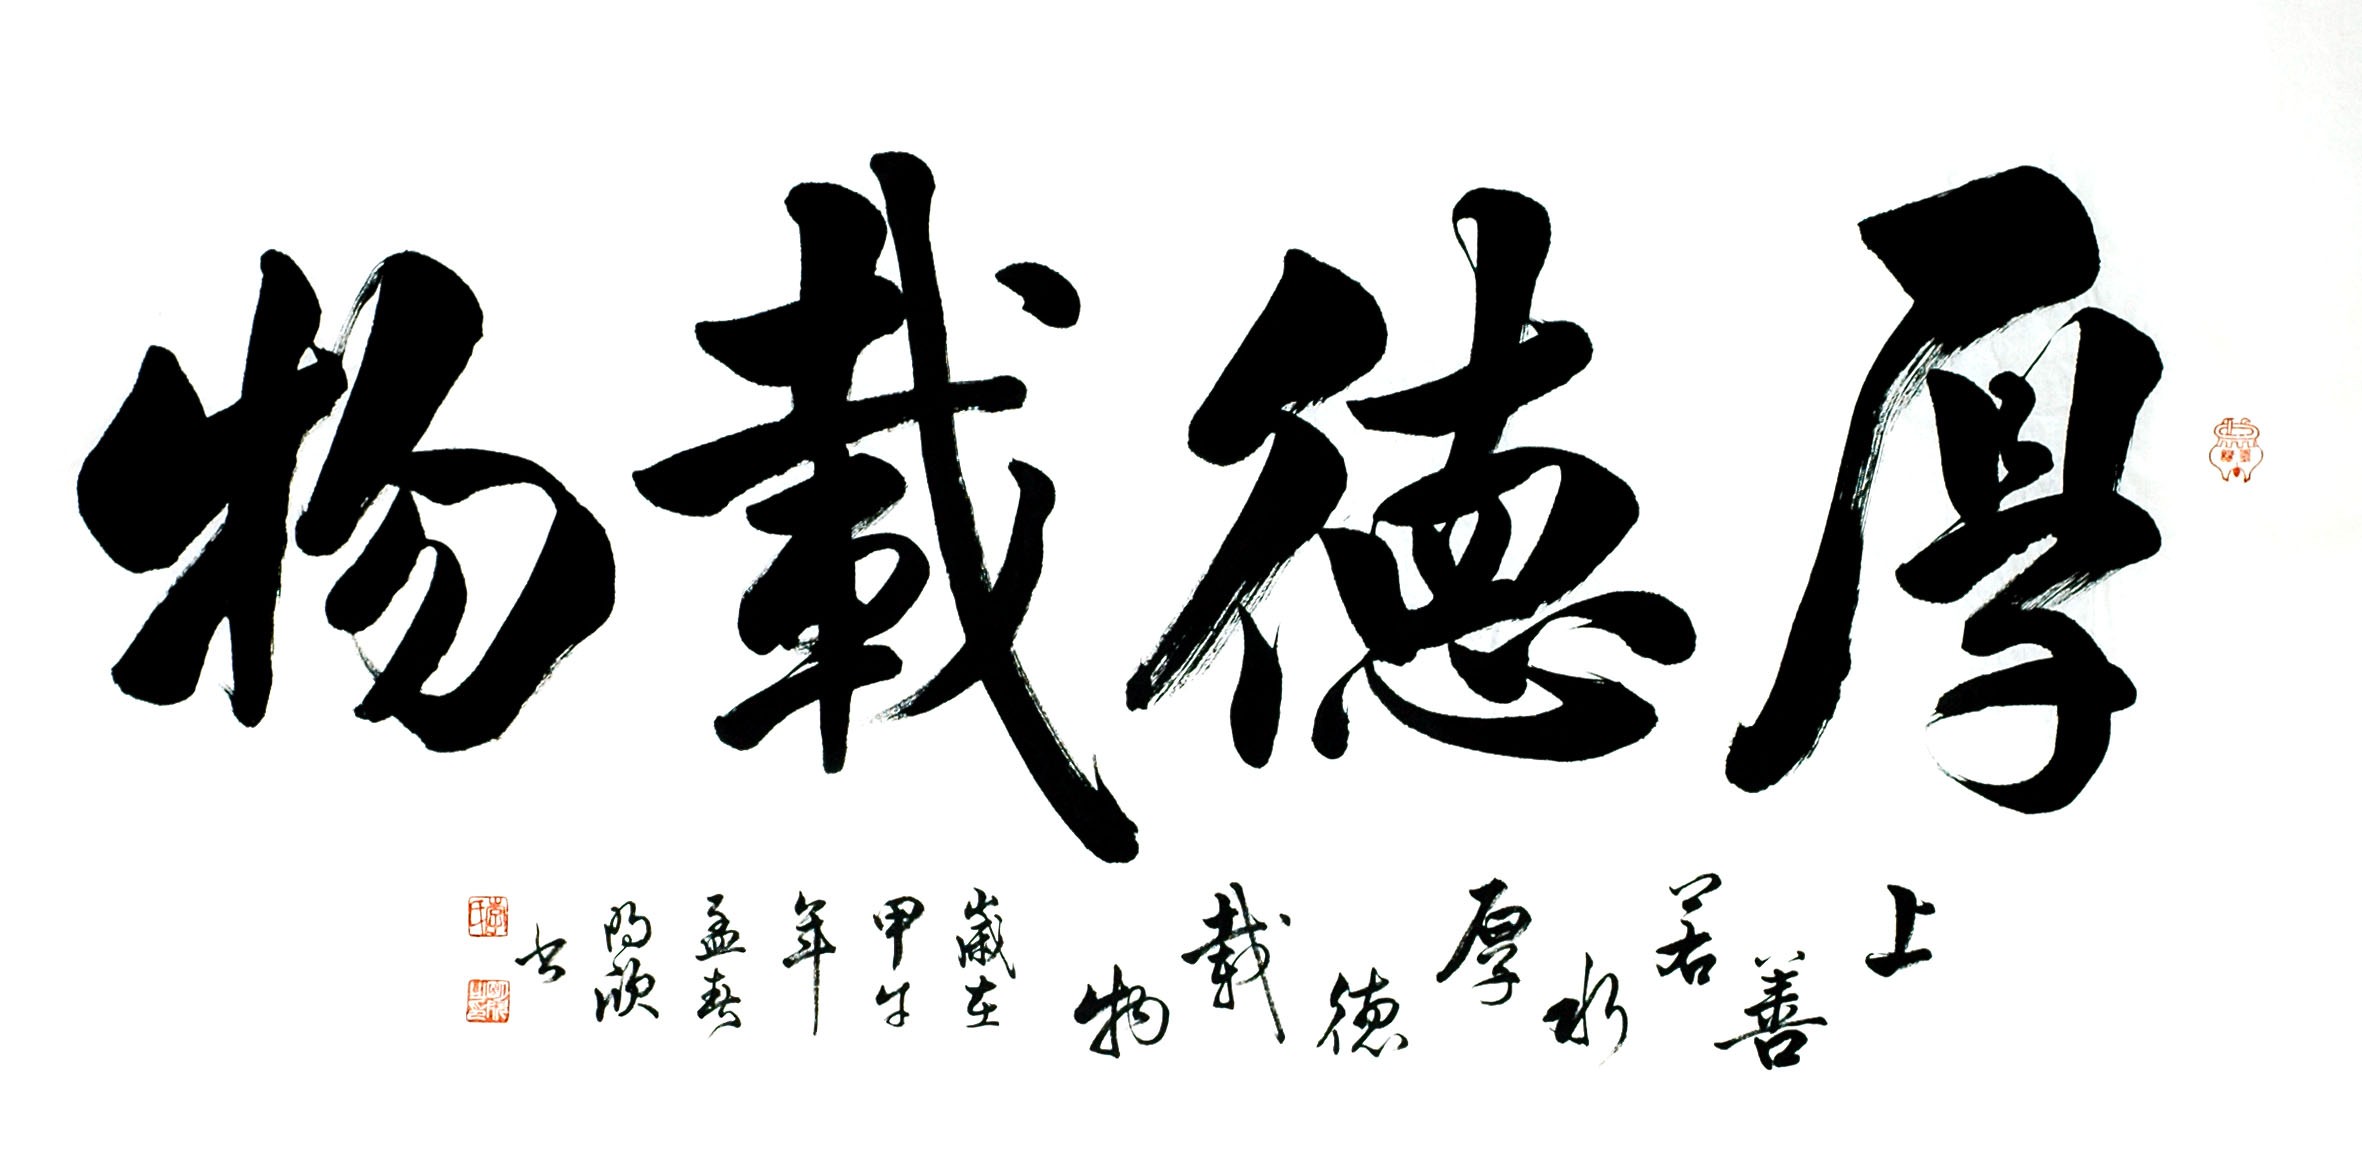 厚德載物
上善若水厚德載物歲在甲午年孟春明欣书